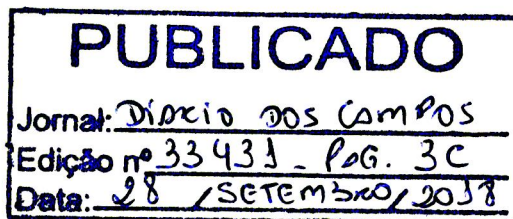 PUBLICADO
Jornal: DIÁRIO DOS CAMPOS
Edição nº 33431 - PÁG. 3C
Data: 28 / SETEMBRO / 2018